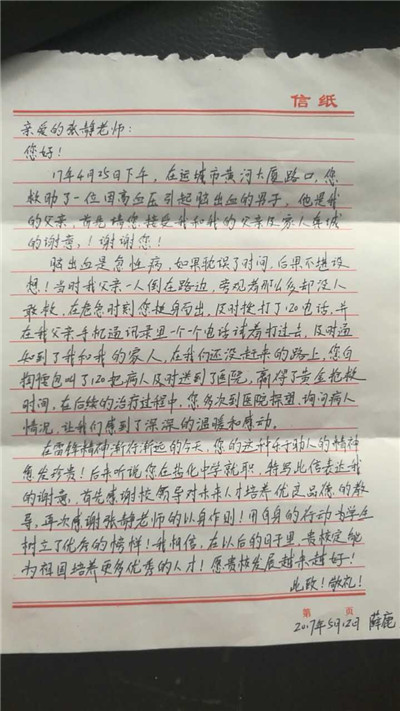 信纸
亲爱的张静老师：
您好！
17年4月25日下午，在运城市黄河大厦路口，您
救助了一位因高血压引起脑出血的男子，他是我
的父亲，首先请您接受我和我的父亲及家人真诚
的谢意，！谢谢您！
脑出血是急性病，如果耽误了时间，后果不堪设
想！当时我父亲一人倒在路边，旁观者那么多却没人
敢救，在危急时刻您挺身而出，及时拨打了120电话，并
在我父亲手机通讯录里一个个电话试着打过去，及时通
知到了我和我的家人，在我们还没赶来的路上，您自
掏腰包叫了120把病人及时送到了医院，赢得了黄金抢救
时间，在后续的治疗过程中，您多次到医院探望、询问病人
情况，让我们感到了深深的温暖和感动。
在雷锋精神渐行渐远的今天，您的这种乐于助人的精神
愈发珍贵！后来听说您在盐化中学就职，特写此信表达我
的谢意，首先感谢校领导对未来人才培养优良品德的教
导，再次感谢张静老师的以身作则！用自身的行动为学生
树立了优秀的榜样！我相信，在以后的日子里，贵校定能
为祖国培养更多优秀的人才！愿贵校发展越来越好！
此致！敬礼！
第 页
2017年5月12日 薛